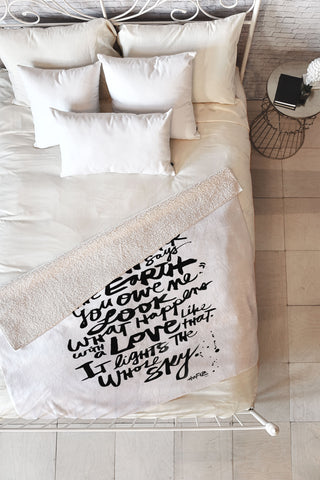 Says
the Earth
You owe me."
Look
What happens
with a Love like that.
It lights the
Whole Sky.
Hafiz